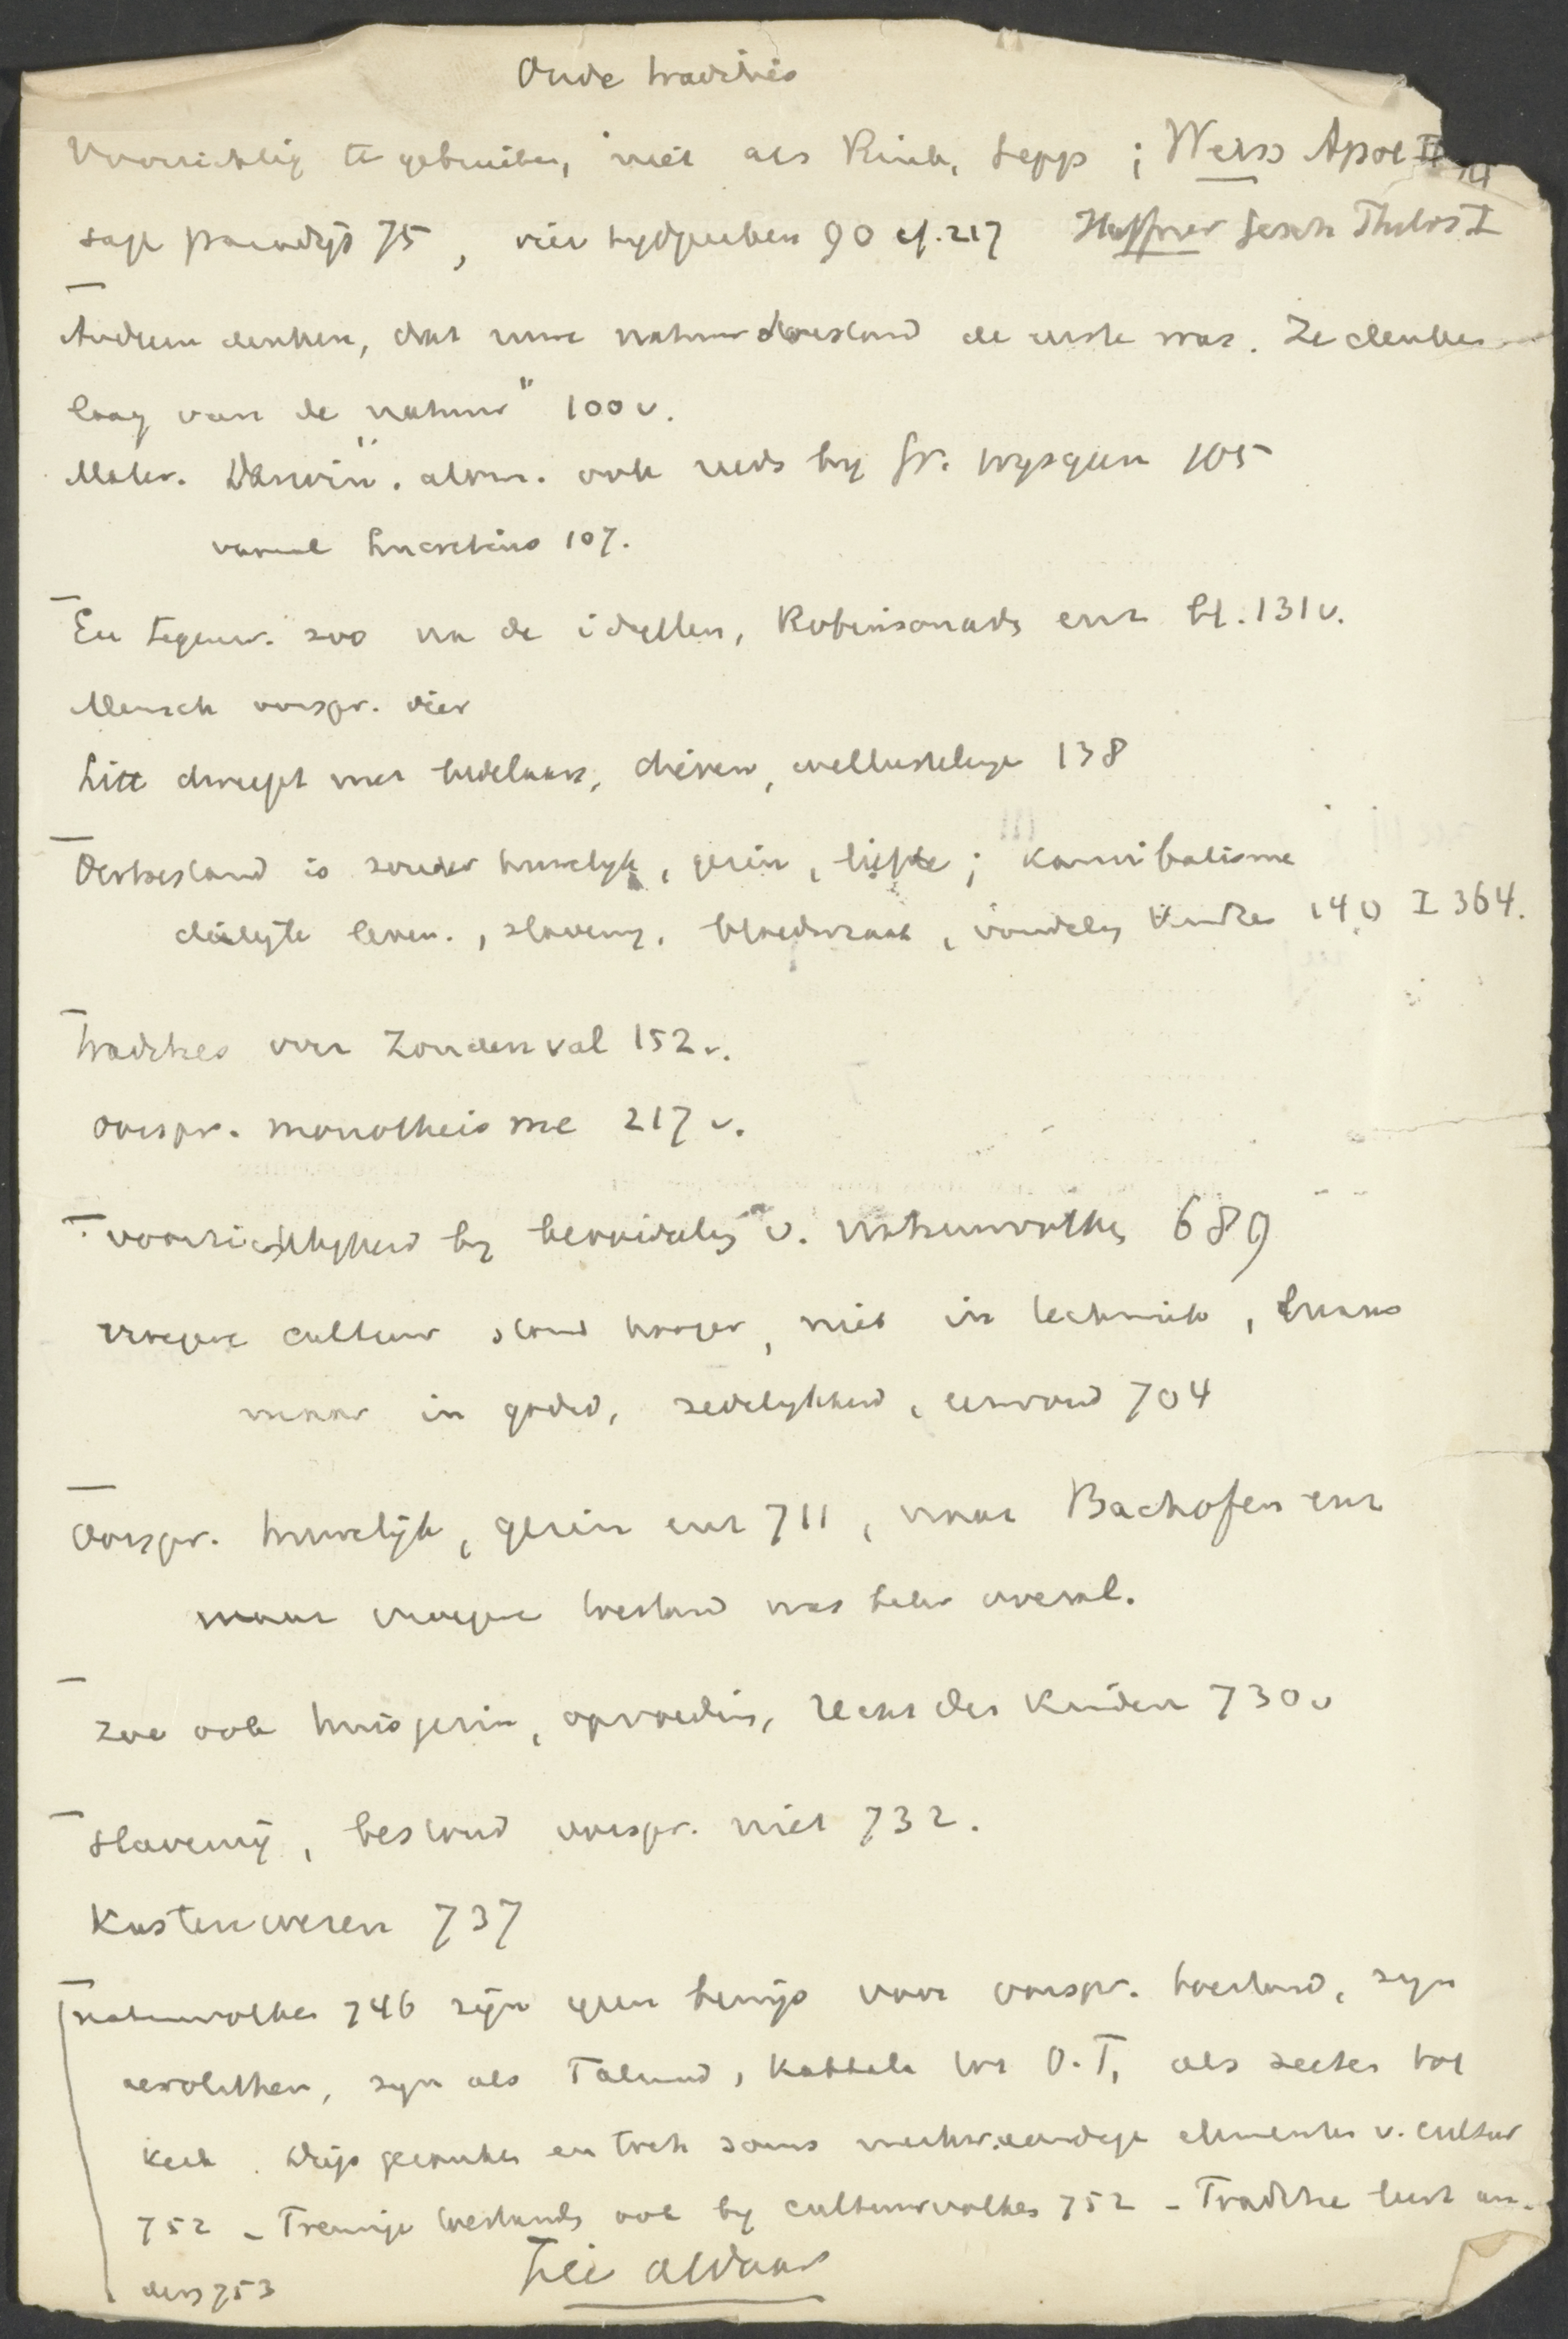 Oude tradities
Voorzichtig te gebruiken, niet als Rink, Sepp ; Weiss Apol II
sage paradijs 75, vier tijdperken 90 cf. 217 Haffner Gesch
Anderen denken, dat ruwe natuurtoestand de eerste was. Ze denken
laag van de "natuur" 100 v.
Mater. Darwin. ook reeds by Gr. wysgeeren 105
vooral Lucretius 107.
En tegenw. zoo na de idyllen, Robinsonads enz bl. 131 v.
Mensch oorspr. dier
Litt dweept met bedelaars, dieven, wellustelinge 138
Oertoestand is zonder huwelyk, gezin, liefde ; Kannibalisme
dierlijk leven., slaverny, bloedwraak, 140 I 364.
Tradities over Zondenval 152 v.
oorspr. monotheisme 217 v.
voorzichtigheid by beoordeling v. natuurvolken 689
vroegere cultuur stond hooger, niet in techniek, luxus
maar in godsd, zedelykheid, eenvoud 704
Oorspr. huwelijk, gezin enz 711, naar Bachofen enz
maar vroegere toestand was beter overal.
zoo ook huisgezin, opvoeding, recht der Kinderen 730 v
Slavernij, bestond oorspr. niet 732.
Kastenwezen 737
natuurvolken 746 zijn geen bewijs voor oorspr. toestand, zyn
aerolithen, zyn als Talmud, Kabbala tot O.T, als secten tot
Kerk. Diep gezonken en toch soms merkwaardige elementen v. cultuur
752 - Treurige toestands ook by cultuurvolken 752 - Traditie leert an-
ders 753 Zie aldaar